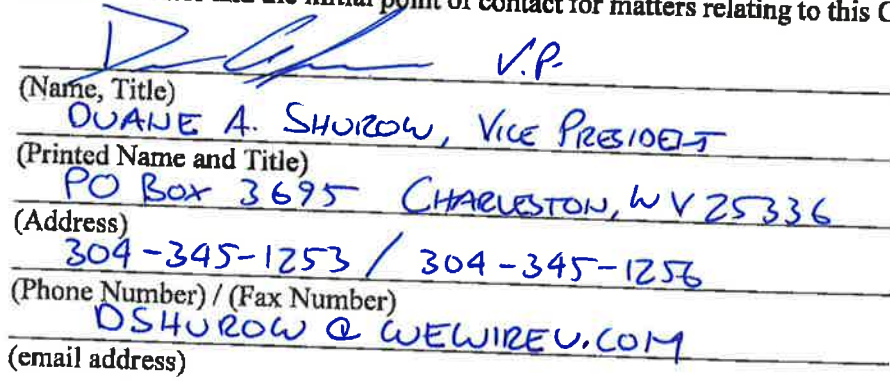 initial point of contact for matters relating to this C
V.P.
(Name, Title)
DUANE A. SHUROW, VICE PRESIDENT
(Printed Name and Title)
PO BOX 3695 CHARLESTON, WV 25336
(Address)
304-345-1253 / 304-345-1256
(Phone Number) / (Fax Number)
DSHUROW @ WEWIREU.COM
(email address)